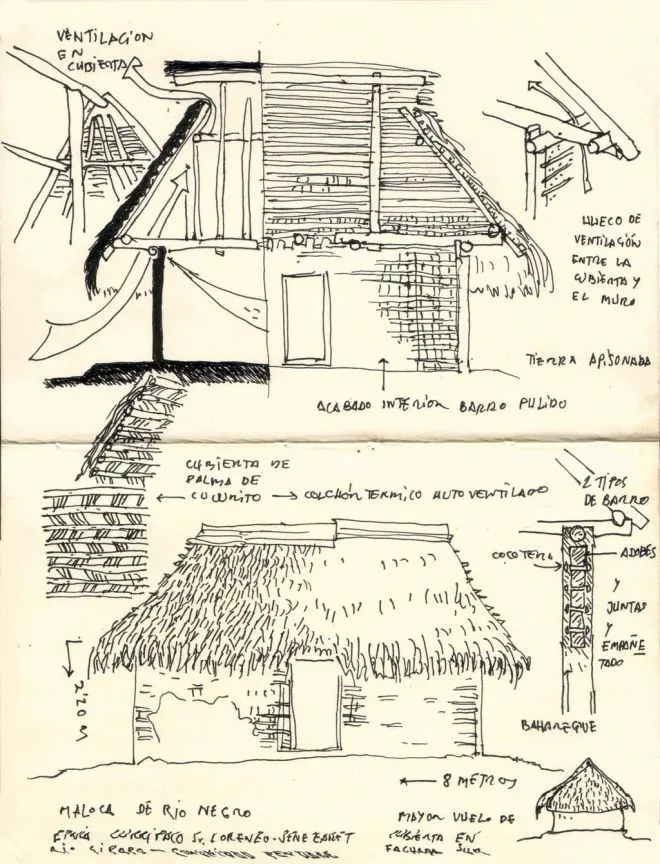 VENTILACION
EN
CUBIERTA
HUECO DE
VENTILACIÓN
ENTRE LA
CUBIERTA Y
EL MURO
TIERRA APISONADA
ACABADO INTERIOR BARRO PULIDO
CUBIERTA DE
PALMA DE
CUCURITO
COLCHÓN TERMICO AUTO VENTILADO
2 TIPOS
DE BARRO
ADOBES
Y
JUNTAS
Y
EMPAÑE
TADO
BAHAREQUE
2'20 M
8 METROS
MALOCA DE RIO NEGRO
MAYOR VUELO DE
CUBIERTA EN
FACHADA SUR
ETNIA LORENZO
RIO